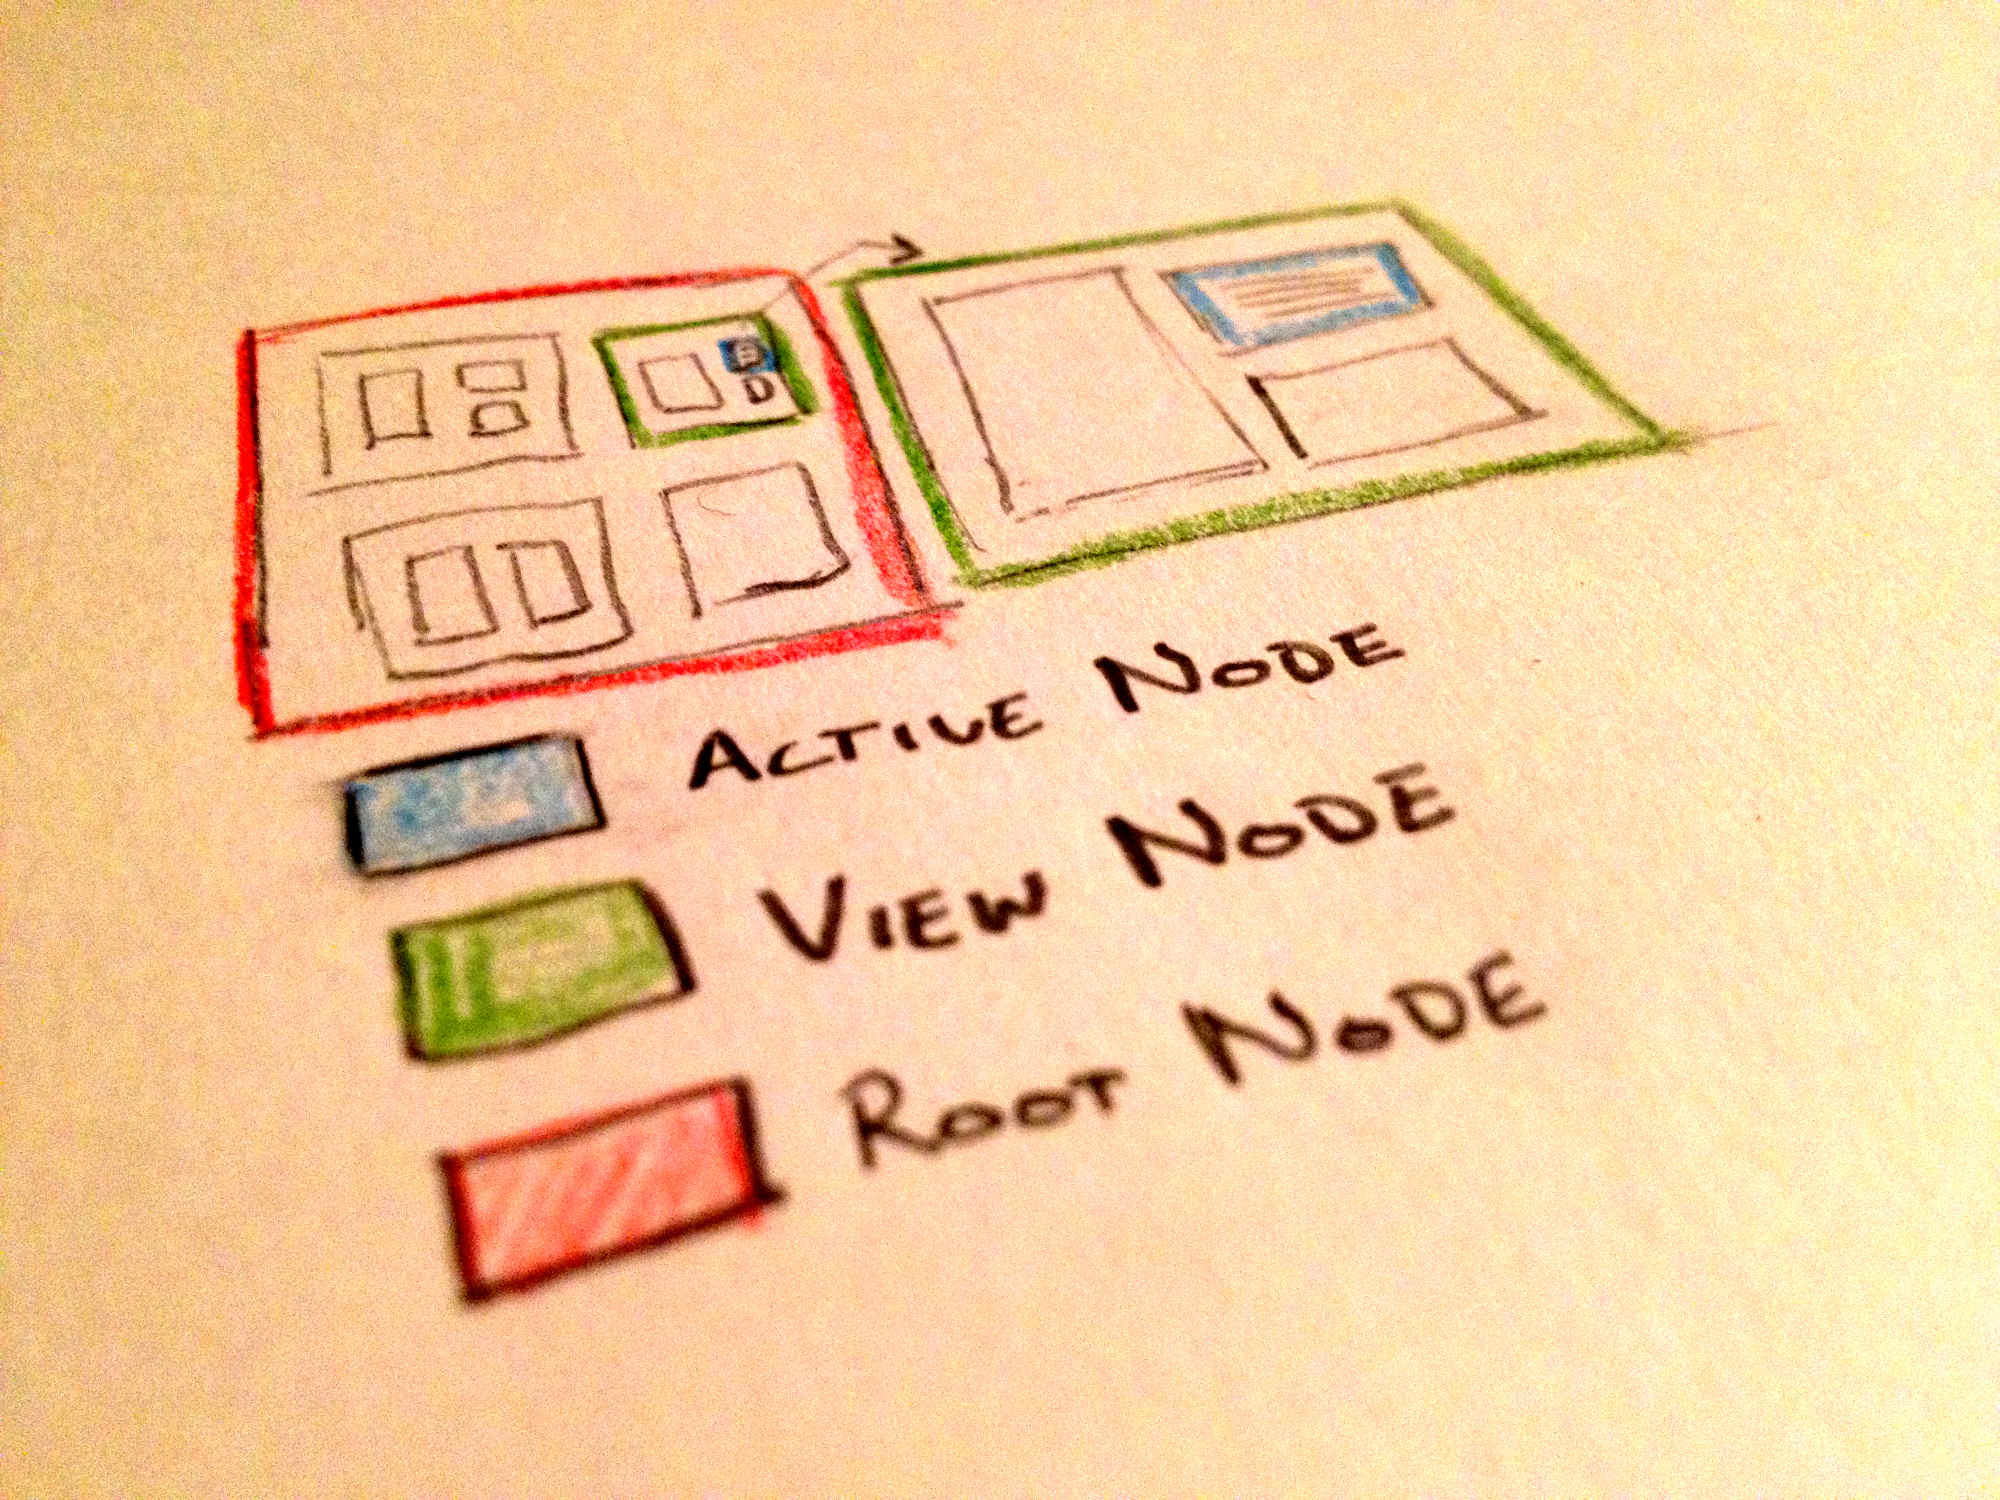 Active Node
View Node
Root Node